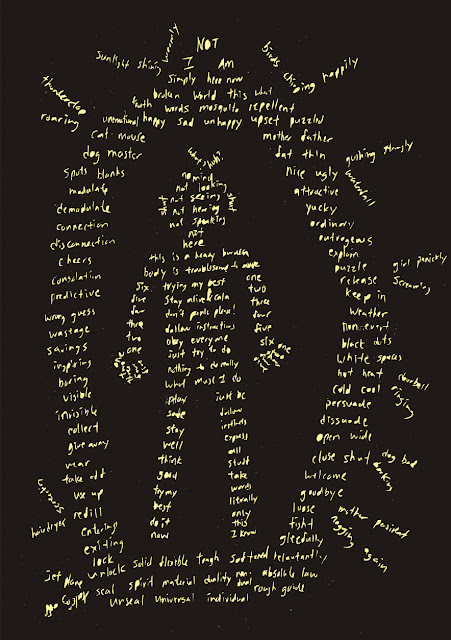 NOT
I AM
simply here now
broken world this what
truth words mosquito repellent
unemotional happy sad unhappy upset puzzled
sunlight shining warmly
birds chirping happily
thunderclap roaring
cat mouse
mother father
dog master
fat thin
gushing strongly waterfall
spots blanks
nice ugly
modulate
attractive
demodulate
yucky
connection
ordinary
disconnection
outrageous
cheers
explain
consolation
puzzle
girl panickly screaming
predictive
release
wrong guess
keep in
wastage
weather
savings
non-event
inspiring
black dots
boring
white spaces
visible
hot heat
doorbell ringing
invisible
cold cool
collect
persuade
give away
dissuade
near
open wide
take off
close shut
dog bad barking
use up
welcome
refill
goodbye
hairdryer
entering
loose
mother persistent nagging again
exiting
tight
lock
gleefully
no mind
not looking
not seeing
not hearing
not speaking
not
here
this is a heavy burden
body is troublesome to move
six trying my best one
five stay alive two
four don't panic please! three
three follow instructions four
two obey everyone five
one just try to do six
nothing to do really
what must I do
play just be
safe follow
stay instincts
well express
think all
good stuff
try my words
best literally
do it only
now this
I know
unlock solid flexible tough softened reluctantly
jet plane
seal spirit material duality non dual absolute law
unseal universal individual rough guide